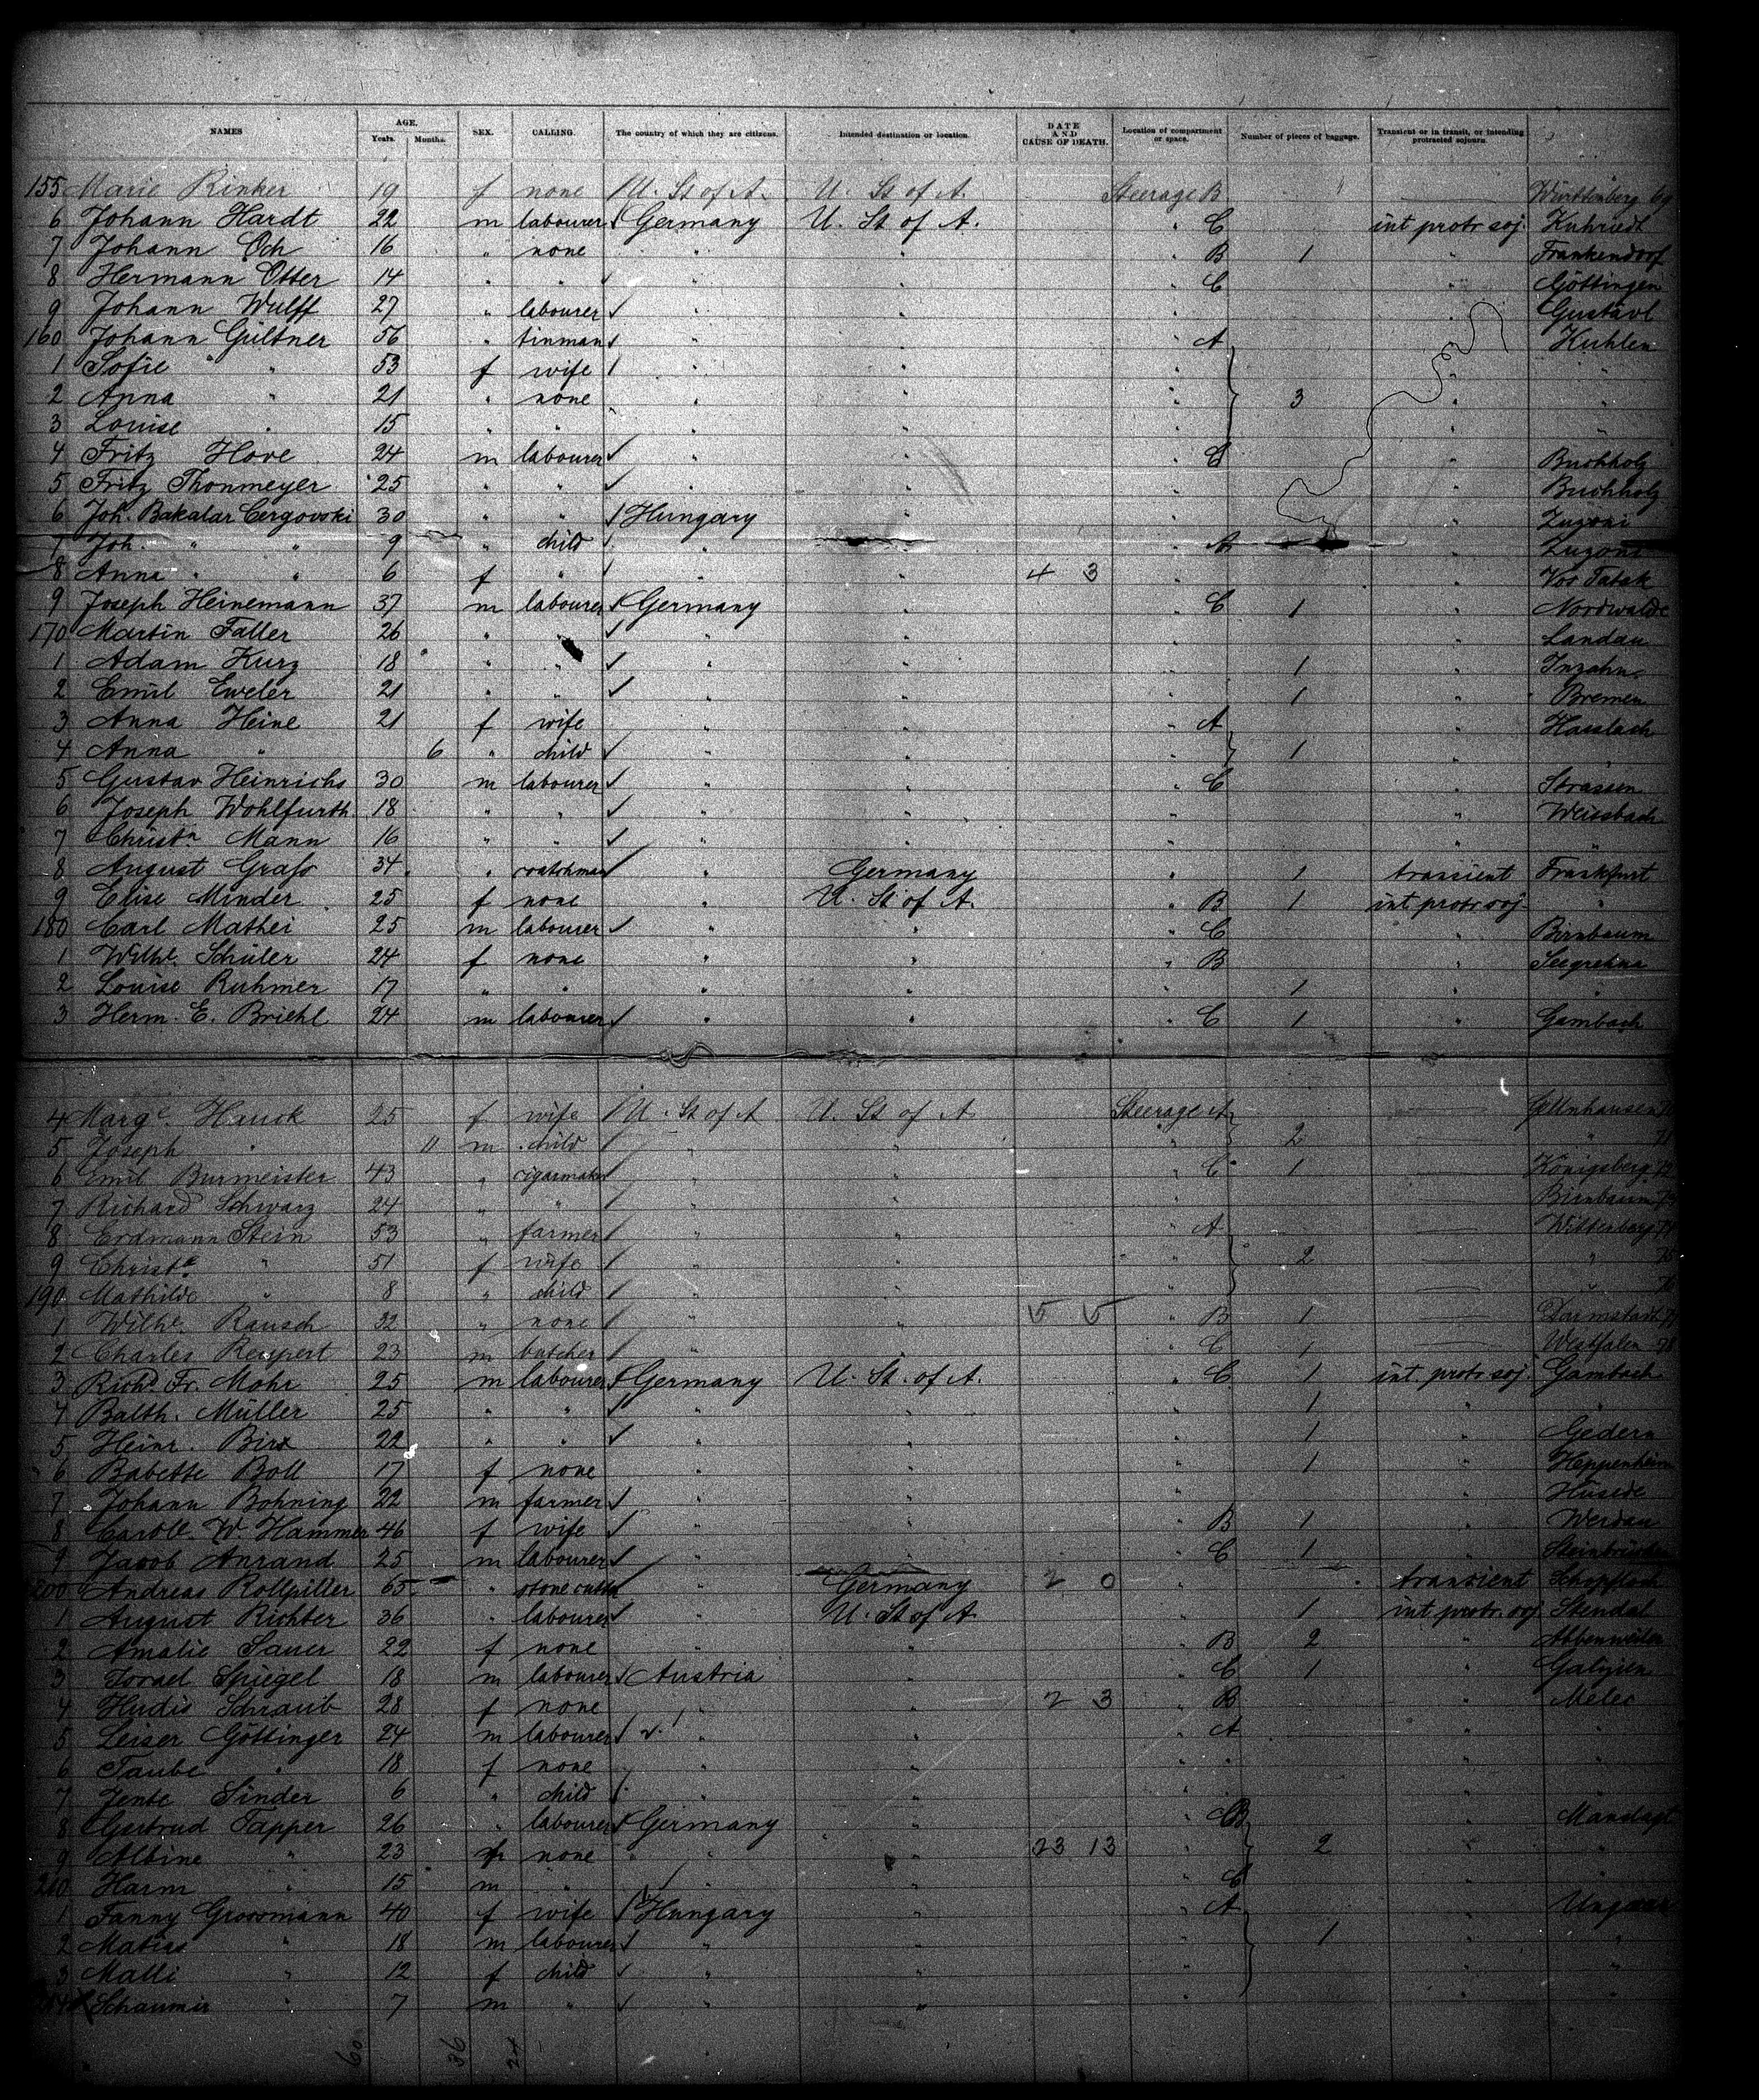 NAMES AGE. Years. Months. SEX. CALLING. The country of which they are citizens. Intended destination or location. DATE AND CAUSE OF DEATH. Location of compartment or space. Number of pieces of baggage. Transient or in transit, or intending protracted sojourn.
155 Marie Rinker 19 f none U. St of A. U. St of A. Steerage B Württemberg 69
6 Johann Hardt 22 m labourer Germany U. St of A. " C int protr soj. Kuhriedt
7 Johann Och 16 " none " " " B 1 " Frankendorf
8 Hermann Otter 14 " " " " " C " Göttingen
9 Johann Wulff 27 " labourer " " " "
160 Johann Gültner 56 " tinman " " " A Kuhlen
1 Sofie " 53 f wife " " " "
2 Anna " 21 " none " " " 3 " "
3 Louise " 15 " " " " " " "
4 Fritz Hove 24 m labourer " " " C " Buchholz
5 Fritz Thonmeyer 25 " " " " " " Buchholz
6 Joh. Bakalar Cergovski 30 " " Hungary " " "
7 Joh. " " 9 " child " " " A "
8 Anna " " 6 f " " " 4 3 " "
9 Joseph Heinemann 37 m labourer Germany " " C 1 " Nordwalde
170 Martin Faller 26 " " " " " " Landau
1 Adam Kurz 18 " " " " " 1 "
2 Emil Eweler 21 " " " " " 1 " Bremen
3 Anna Heine 21 f wife " " " A " Hasslach
4 Anna " 6 " child " " " 1 "
5 Gustav Heinrichs 30 m labourer " " " C " Strassen
6 Joseph Wohlfurth 18 " " " " " " Weissbach
7 Christn Mann 16 " " " " " " "
8 August Grafs 34 " coatchman " Germany " 1 transient Frankfurt
9 Elise Minder 25 f none " U. St of A. " B 1 int protr soj. "
180 Carl Mathei 25 m labourer " " " C " Birnbaum
1 Wilhe. Schüler 24 f none " " " B "
2 Louise Ruhmer 17 " " " " " 1 " "
3 Herm. E. Briehl 24 m labourer " " " C 1 " Gambach
4 Marge. Hauck 25 f wife U. St of A U. St of A Steerage A Gelnhausen 70
5 Joseph " 11 m child " " " 2 " 71
6 Emil Burmeister 43 " cigarmaker " " " C 1 Königsberg 72
7 Richard Schwarz 24 " " " " " Birnbaum 73
8 Erdmann Stein 53 " farmer " " " A Wittenberg 74
9 Christe " 51 f wife " " " 2 " 75
190 Mathilde " 8 " child " " " " 76
1 Wilhe. Rausch 22 " none " " 5 5 " B 1 Darmstadt 77
2 Charles Reupert 23 m butcher " " " C 1 Westfalen 78
3 Richd Fr. Mohr 25 m labourer Germany U. St. of A. " C 1 int. protr soj. Gambach
4 Balth. Müller 25 " " " " " 1 " "
5 Heinr. Birx 22 " " " " " 1 " Gedern
6 Babette Boll 17 f none " " " 1 " Heppenheim
7 Johann Bohning 22 m farmer " " " " Husede
8 Caroll. W. Hammer 46 f wife " " " B 1 " Werdau
9 Jacob Anrand 25 m labourer " " " C 1 "
200 Andreas Rollpiller 65 " stone cutter " Germany 2 0 " transient Schopfloch
1 August Richter 36 " labourer " U. St of A. " 1 int protr. soj. Stendal
2 Amalie Sauer 22 f none " " " B 2 "
3 Israel Spiegel 18 m labourer Austria " " C 1 " Galizien
4 Hudis Schraub 28 f none " " 2 3 " B " Melec
5 Leiser Göttinger 24 m labourer " " " A " "
6 Taube " 18 f none " " " " "
7 Jente Sinder 6 " child " " " " "
8 Gertrud Tapper 26 " labourer Germany " " B "
9 Albine " 23 f none " " 23 13 " 2 " "
210 Harm " 15 m " " " C " "
1 Fanny Grossmann 40 f wife Hungary " " A " Ungarn
2 Matias " 18 m labourer " " " 1 " "
3 Malli " 12 f child " " " " "
214 Schaumir " 7 m " " " " " "
60 36 24